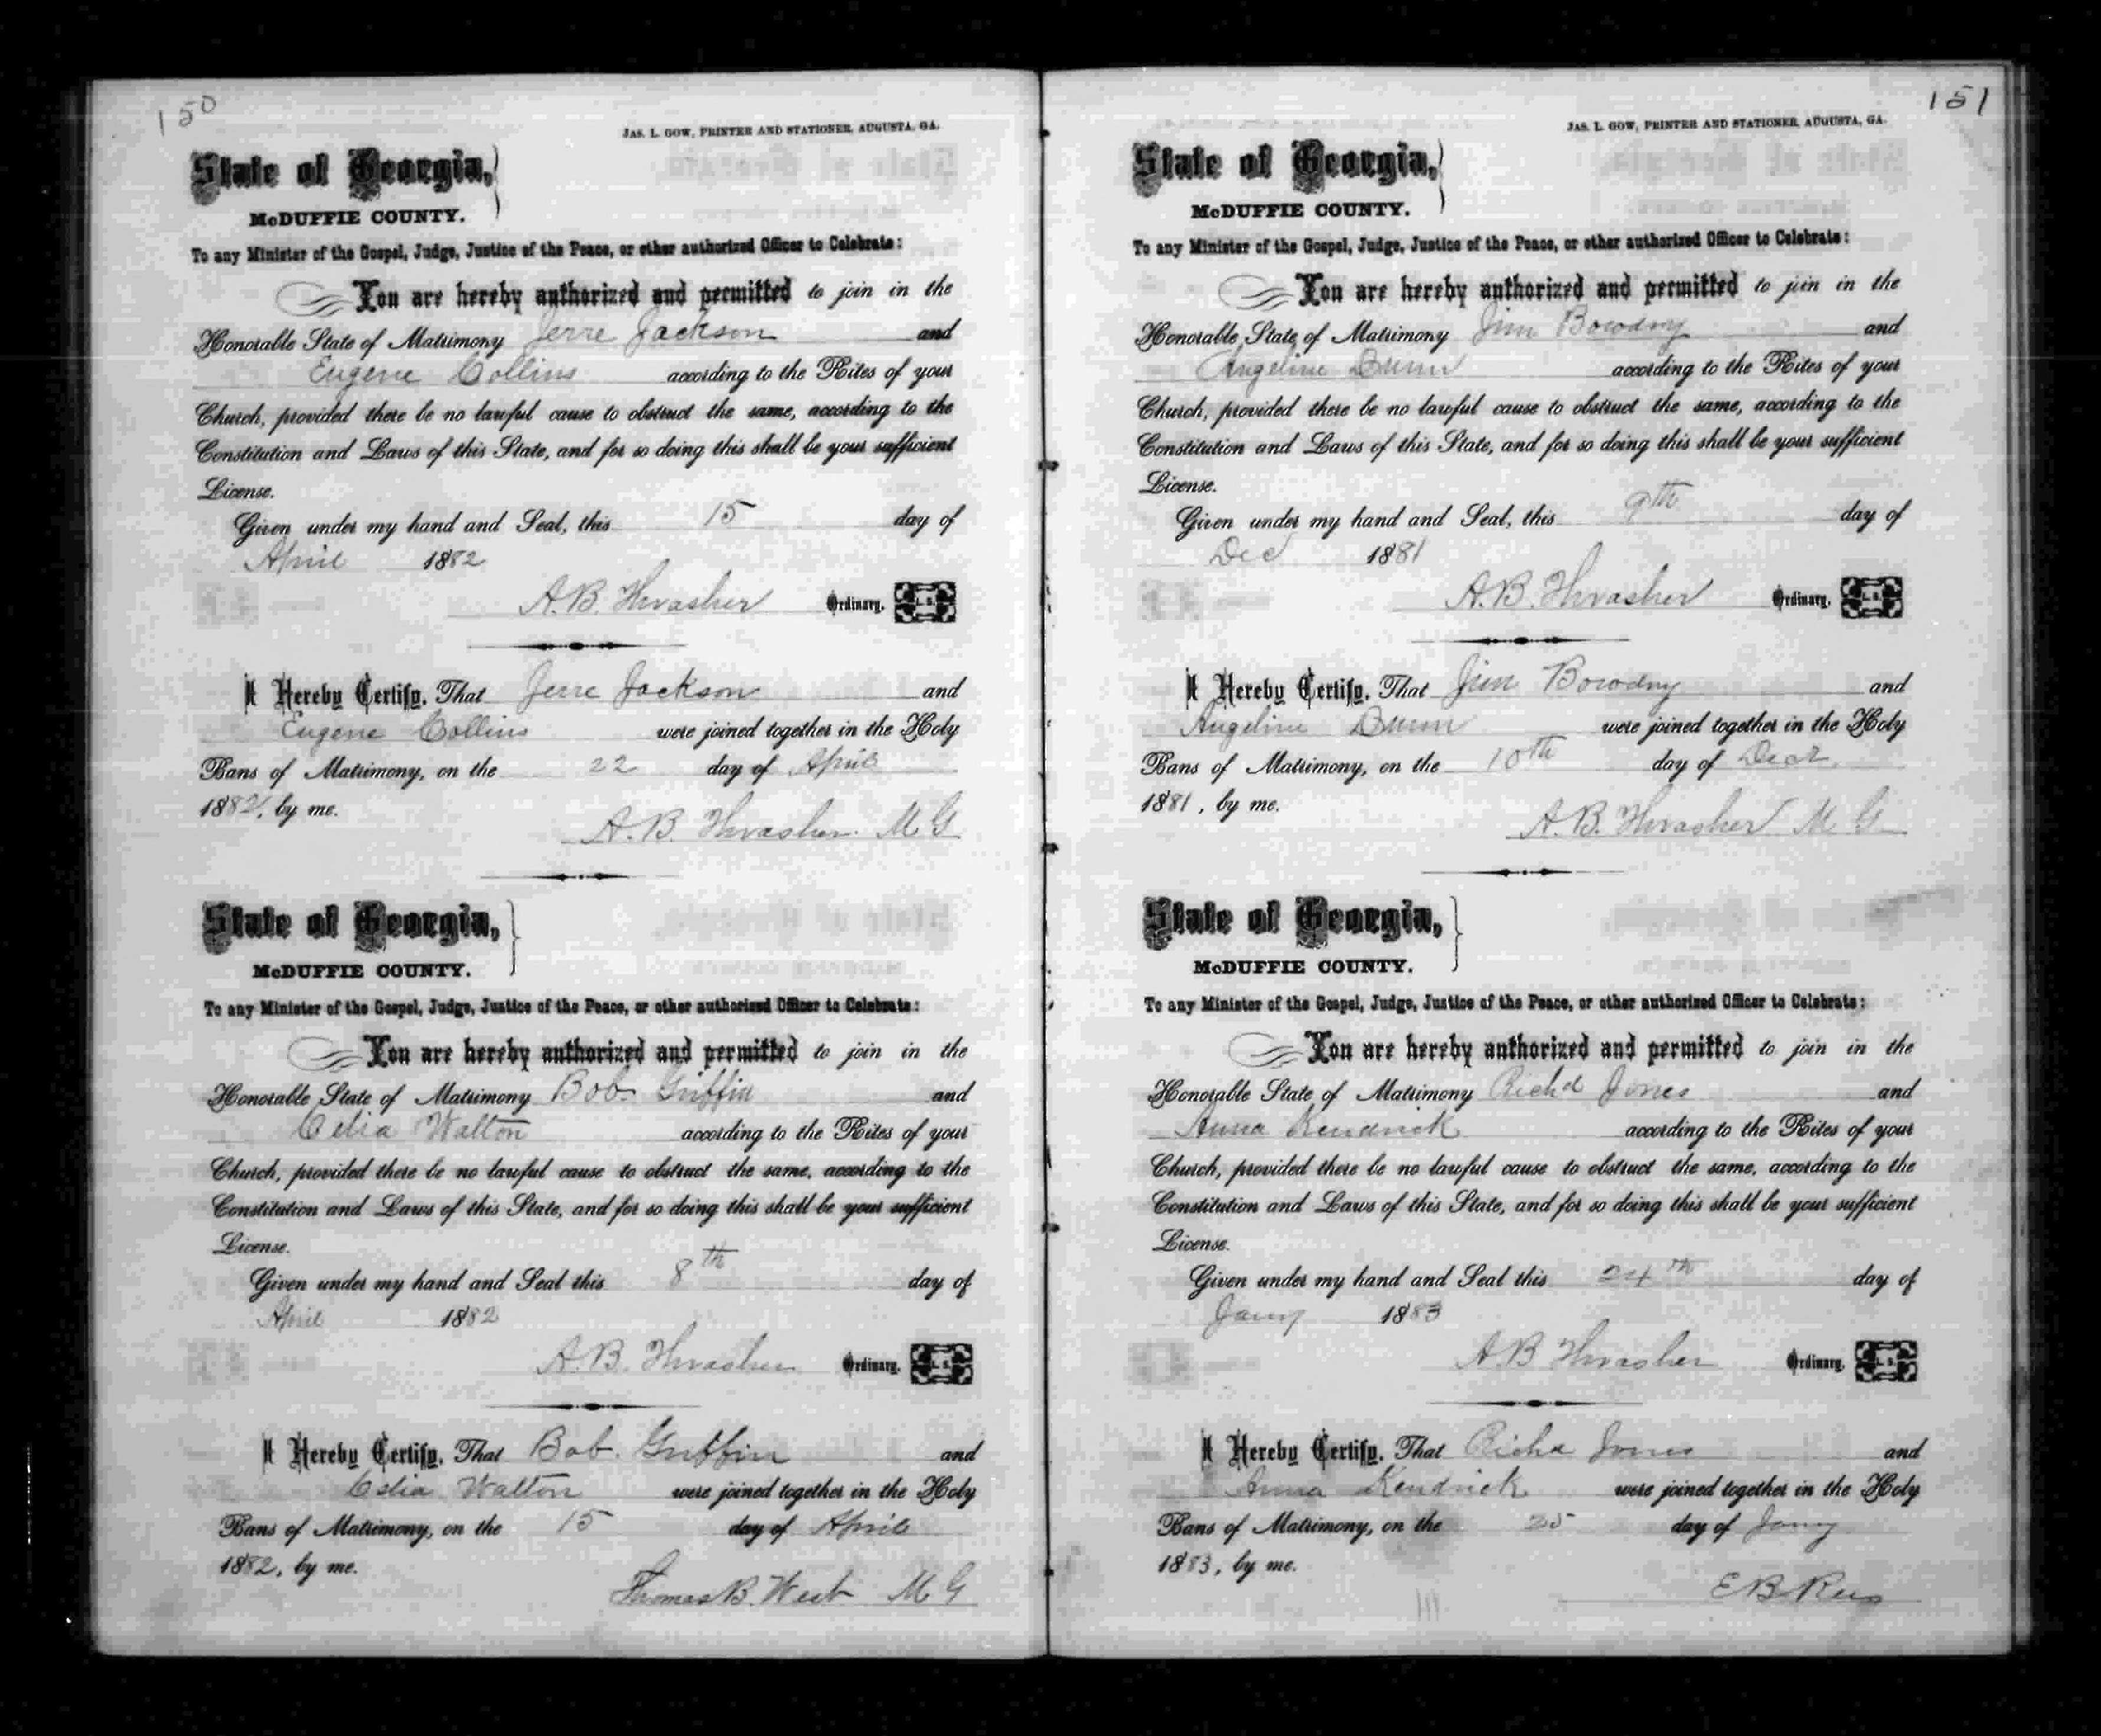 150
JAS. L. GOW, PRINTER AND STATIONER, AUGUSTA, GA.
State of Georgia,
McDUFFIE COUNTY.
To any Minister of the Gospel, Judge, Justice of the Peace, or other authorized Officer to Celebrate:
You are hereby authorized and permitted to join in the
Honorable State of Matrimony Jerre Jackson and
Eugene Collins according to the Rites of your
Church, provided there be no lawful cause to obstruct the same, according to the
Constitution and Laws of this State, and for so doing this shall be your sufficient
License.
Given under my hand and Seal, this 15 day of
April 1882
A. B. Thrasher Ordinary. L. S.
I Hereby Certify, That Jerre Jackson and
Eugene Collins were joined together in the Holy
Bans of Matrimony, on the 22 day of April
1882, by me.
A. B. Thrasher. M G
State of Georgia,
McDUFFIE COUNTY.
To any Minister of the Gospel, Judge, Justice of the Peace, or other authorized Officer to Celebrate:
You are hereby authorized and permitted to join in the
Honorable State of Matrimony Bob Griffin and
Celia Walton according to the Rites of your
Church, provided there be no lawful cause to obstruct the same, according to the
Constitution and Laws of this State, and for so doing this shall be your sufficient
License.
Given under my hand and Seal this 8th day of
April 1882
A. B. Thrasher Ordinary. L. S.
I Hereby Certify, That Bob Griffin and
Celia Walton were joined together in the Holy
Bans of Matrimony, on the 15 day of April
1882, by me.
Thomas B. West M G
151
JAS. L. GOW, PRINTER AND STATIONER, AUGUSTA, GA.
State of Georgia,
McDUFFIE COUNTY.
To any Minister of the Gospel, Judge, Justice of the Peace, or other authorized Officer to Celebrate:
You are hereby authorized and permitted to join in the
Honorable State of Matrimony Jim Bowdry and
Angeline Bunn according to the Rites of your
Church, provided there be no lawful cause to obstruct the same, according to the
Constitution and Laws of this State, and for so doing this shall be your sufficient
License.
Given under my hand and Seal, this 9th day of
Dec 1881
A. B. Thrasher Ordinary. L. S.
I Hereby Certify, That Jim Bowdry and
Angeline Bunn were joined together in the Holy
Bans of Matrimony, on the 10th day of Decr
1881, by me.
A. B. Thrasher M. G.
State of Georgia,
McDUFFIE COUNTY.
To any Minister of the Gospel, Judge, Justice of the Peace, or other authorized Officer to Celebrate:
You are hereby authorized and permitted to join in the
Honorable State of Matrimony Richd Jones and
Anna Kendrick according to the Rites of your
Church, provided there be no lawful cause to obstruct the same, according to the
Constitution and Laws of this State, and for so doing this shall be your sufficient
License.
Given under my hand and Seal this 24th day of
Jany 1883
A B Thrasher Ordinary. L. S.
I Hereby Certify, That Richd Jones and
Anna Kendrick were joined together in the Holy
Bans of Matrimony, on the 25 day of Jany
1883, by me.
E B Rees